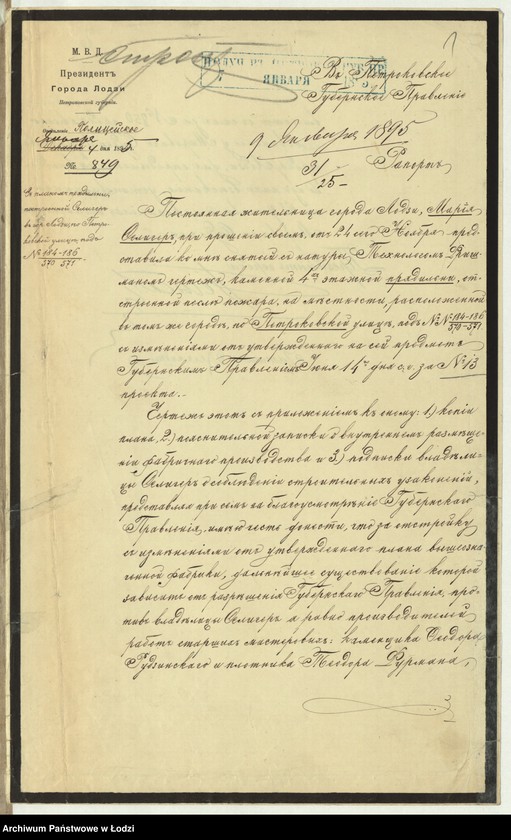 М. В. Д.
Президентъ
Города Лодзи
Петроковской губерніи.
Отдѣленіе Полицейское
Января
4 дня 1895 г.
№ 849
Съ планомъ прядильни
построенной Селигеръ
въ г. Лодзи по Петро-
ковской улицѣ подъ
№ 184-186
570 571
ПОЛУЧ. ВЪ
ЯНВАРЯ
Въ Петроковское
Губернское Правленіе
9 Января 1895
31
25
Рапортъ
Постоянная жительница города Лодзи, Марія
Селигеръ, при прошеніи своемъ, отъ 24 сего Ноября пред-
ставила ко мнѣ снятый съ натуры Техникомъ
чертежъ, каменной 4хъ этажной прядильни, от-
строенной послѣ пожара, на мѣстности, расположенной
въ томъ же городѣ, по Петроковской улицѣ, подъ №№ 184-186
570-571
съ измѣненіями отъ утвержденнаго на сей предметъ
Губернскимъ Правленіемъ Іюня 14го дня с. г. за № 13
проекта.
Чертежъ этотъ съ приложеніемъ къ нему: 1) копіи
плана, 2) пояснительной записки о внутреннемъ размѣще-
ніи фабричнаго производства и 3) подписки владѣли-
цы Селигеръ о соблюденіи строительныхъ узаконеній,
представляя при семъ на благоусмотрѣніе Губернскаго
Правленія, имѣю честь донести, что за отстройку
съ измѣненіями отъ утвержденнаго плана вышеозна-
ченной фабрики, дальнѣйшее существованіе которой
зависитъ отъ разрѣшенія Губернскаго Правленія, про-
тивъ владѣлицы Селигеръ а равно производителей
работъ старшихъ мастеровыхъ: каменщика Ѳеодора
Гудзинскаго и плотника Теодора Фурмана,
Archiwum Państwowe w Łodzi